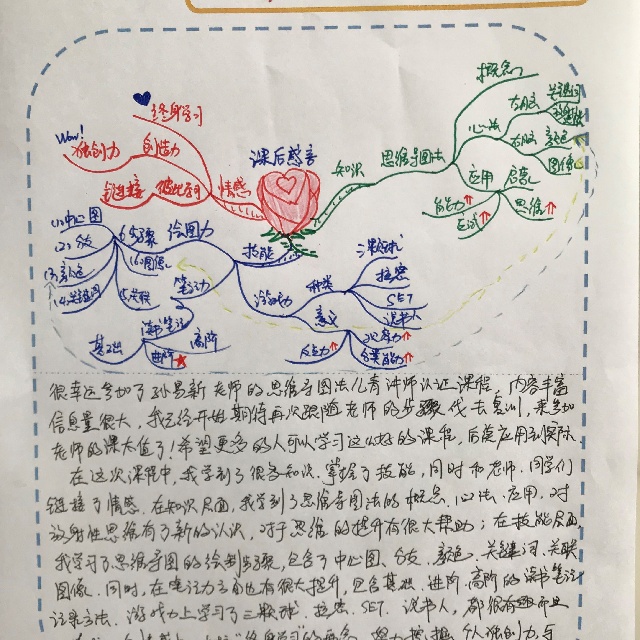 课后感言
情感
终身学习
创造力
独创力
Wow!
链接
彼此
知识
思维导图法
概念
心法
左脑
关键词
右脑
颜色
图像
应用
能力
考试
思维
技能
绘图力
6步骤
(1)中心图
笔记力
读书笔记
基础
进阶
高阶
游戏力
种类
三颗球
拉密
SET
说书人
意义
反应力
很幸运参加了孙易新老师的思维导图法儿青讲师认证课程，内容丰富
信息量很大，我已经开始期待再次跟随老师的步骤代去复训，来参加
老师的课太值了！希望更多的人可以学习这么好的课程，后续应用到实际
在这次课程中，我学到了很多知识、掌握了技能，同时和老师、同学们
链接了情感。在知识层面，我学到了思维导图法的概念、心法、应用，对
放射性思维有了新的认识，对于思维的提升有很大帮助；在技能层面，
我学习了思维导图的绘制步骤，包含了中心图、分支、颜色、关键词、关联
图像。同时，在笔记力方面也有很大提升，包含基础、进阶、高阶的读书笔记
记录方法。游戏力上学习了三颗球、拉密、SET、说书人，都很有趣而且